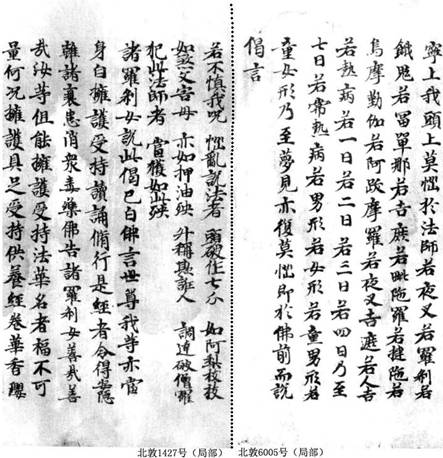 寧上我頭上莫惱於法師若夜叉若羅剎若
餓鬼若富單那若吉蔗若毗陁羅若揵陁若
烏摩勒伽若阿跋摩羅若夜叉吉蔗若人吉
若熱病若一日若二日若三日若四日乃至
七日若常熱病若男形若女形若童男形若
童女形乃至夢見亦復莫惱即於佛前而說
偈言
若不慎我呪 惱亂說法者 頭破作七分 如阿梨樹枝
如煞父害母 亦如押油殃 升稱欺誑人 調達破僧罪
犯此法師者 當獲如此殃
諸羅剎女說此偈已白佛言世尊我等亦當
身自擁護受持讀誦脩行是經者令得安隱
離諸衰患消衆毒藥佛告諸羅剎女善哉善
哉汝等但能擁護受持法華名者福不可
量何况擁護具足受持供養經卷華香瓔
北敦1427号（局部） 北敦6005号（局部）